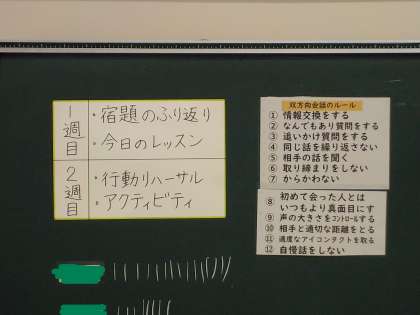 1週目
・宿題のふり返り
・今日のレッスン
2週目
・行動リハーサル
・アクティビティ
双方向会話のルール
① 情報交換をする
② なんでもあり質問をする
③ 追いかけ質問をする
④ 同じ話を繰り返さない
⑤ 相手の話を聞く
⑥ 取り締まりをしない
⑦ からかわない
⑧ 初めて会った人とは
いつもより真面目にす
⑨ 声の大きさをコントロールする
⑩ 相手と適切な距離をとる
⑪ 適度なアイコンタクトを取る
⑫ 自慢話をしない